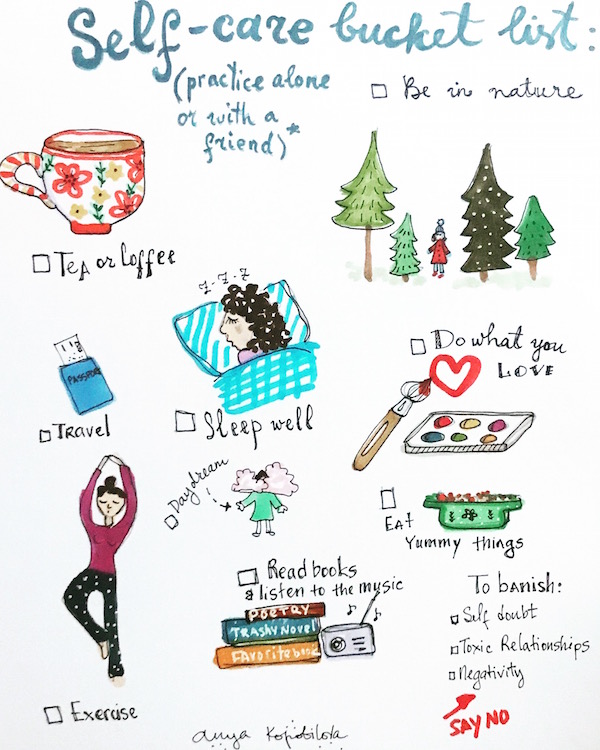 Self-care bucket list:
(practice alone
or with a
friend)*
Be in nature
Tea or Coffee
z-z-z
Do what you
LOVE
PASSPORT
Travel
Sleep well
Daydream
!
Eat
Yummy things
Read books
& listen to the music
POETRY
TRASHY NOVEL
FAVorite book
To banish:
Self doubt
Toxic Relationships
Negativity
SAY NO
Exercise
Anya